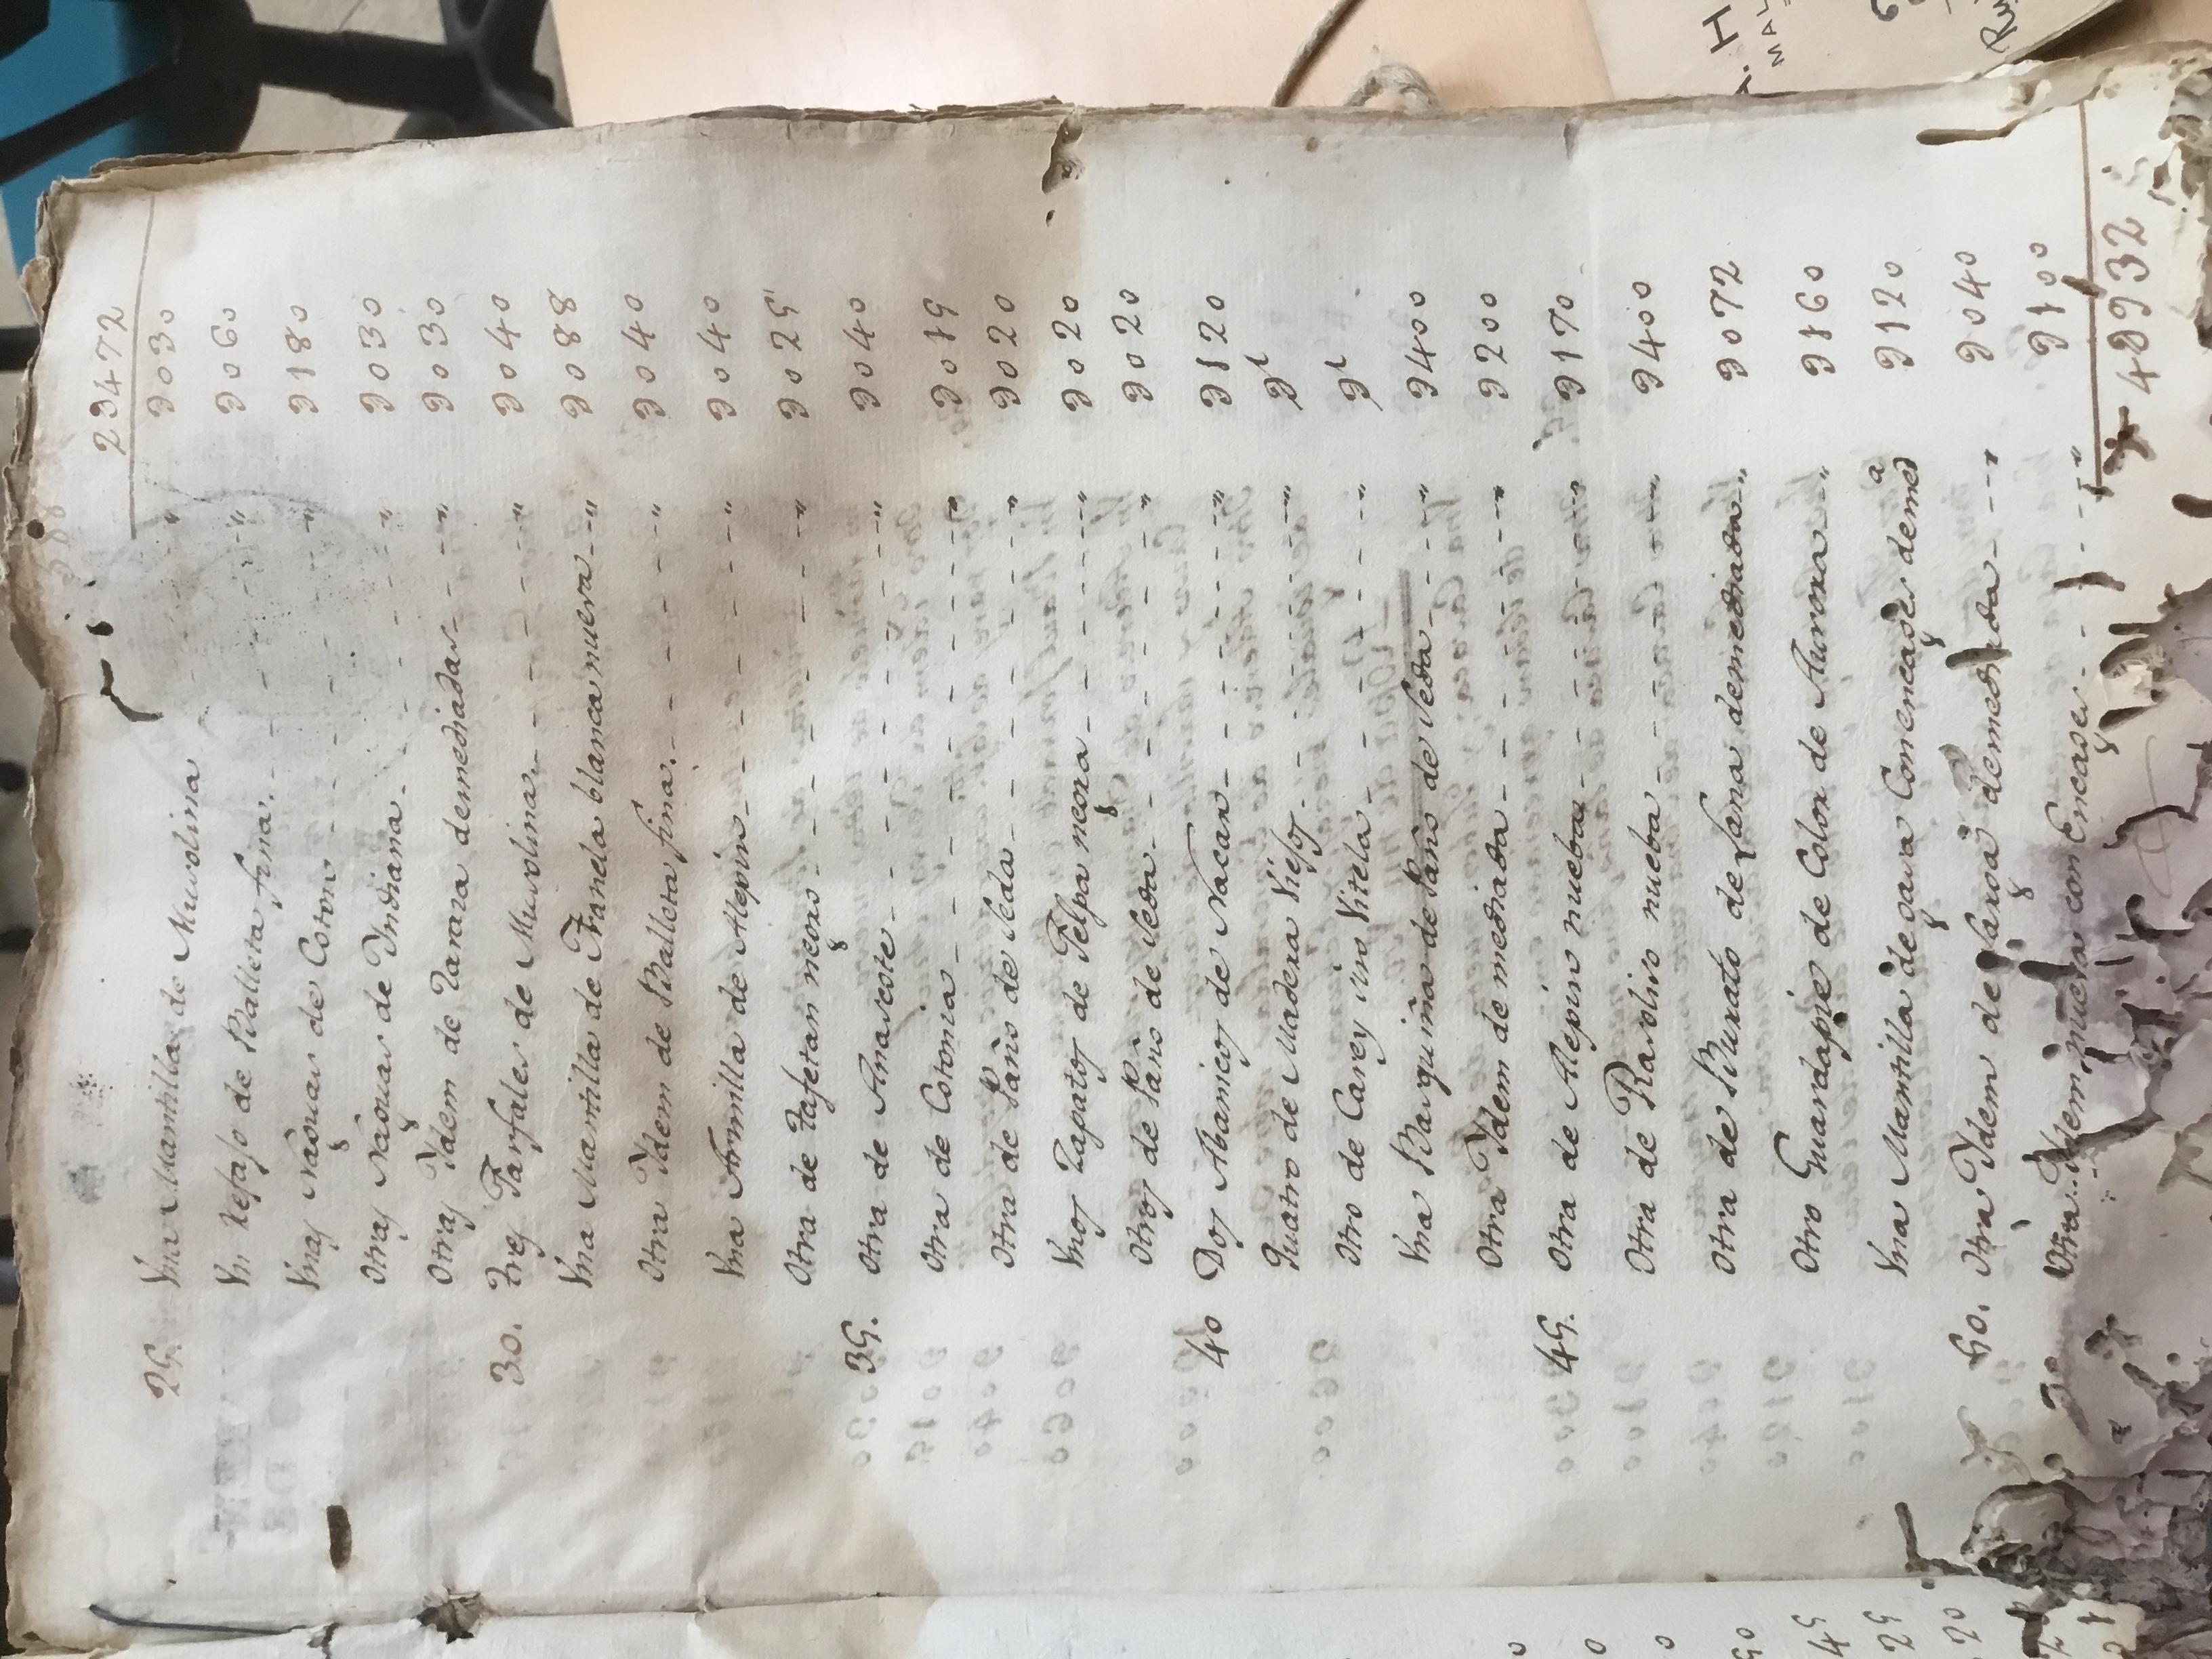 23472
25. Vna Mantilla de Musolina " 9030
Vn refajo de Balleta fina. " 9060
Vnas Naguas de Coton " 9180
Otras Naguas de Yndiana " 9030
Otras Ydem de Zaraza demediadas " 9030
30. Tres Farfales de Musolina " 9040
Vna Mantilla de Franela blanca nueva " 9088
Otra Ydem de Balleta fina. " 9040
Vna Armilla de Alepin " 9040
Otra de tafetan negro " 9025
35. Otra de Anascote " 9040
Otra de Cotonia " 9015
Otra de Paño de Seda " 9020
Vnos Zapatos de Felpa negra " 9020
Otros de Paño de Seda " 9020
40 Dos Abanicos de Nacar " 9120
Quatro de Madera Viejos "
Otro de Carey sin Vitela "
Vna Basquiña de Paño de Seda " 9400
Otra Ydem demediada " 9200
45. Otra de Alepin nueba " 9170
Otra de Rasoliso nueba " 9400
Otra de Burato de Lana demediada " 9072
Otro Guardapie de Color de Aurora " 9160
Vna Mantilla de gasa Con encages demed.a 9120
50. Otra Ydem de Sarga demediada " 9040
Otra Ydem nueva con Encages " 9100
48932